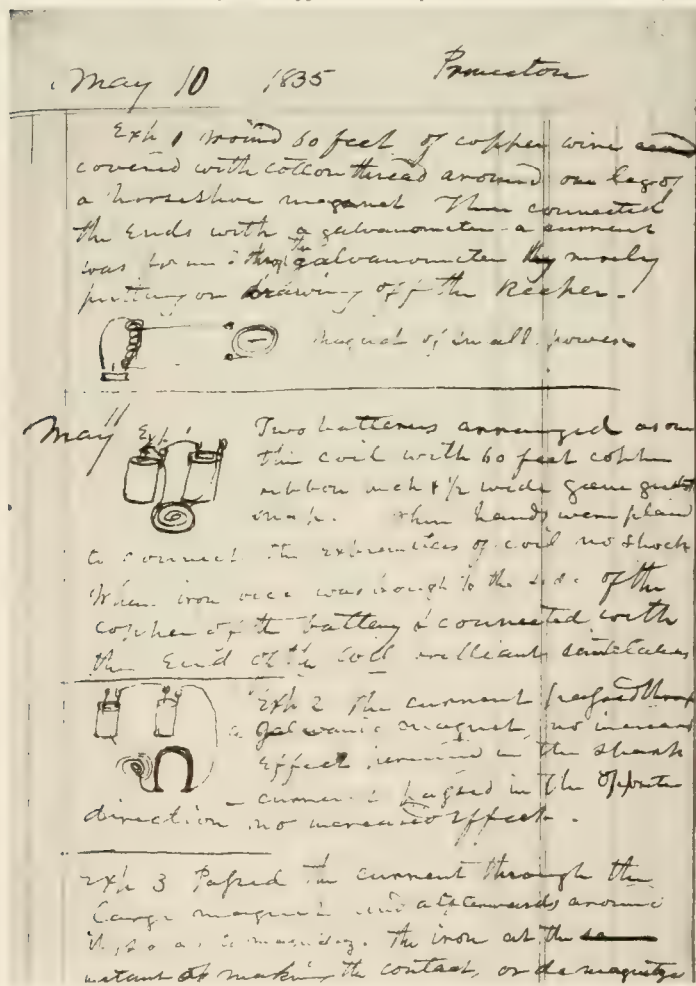 May 10 1835 Princeton
Exp 1 wound 60 feet of copper wire
covered with cotton thread around one leg of
a horseshoe magnet Then connected
the ends with a galvanometer a current
was form thro the galvanometer by merely
putting on drawing off the Keeper.
magnet of small power
May 11 Exp 1 Two batteries arranged as one
this coil with 60 feet copper
ribbon inch & 1/2 wide gave
when hands were
to connect the extremities of coil no shock
When iron was brough to the side of the
copper of the battery & connected with
the End of the coil brilliant
Exp 2 The current passed thro
a Galvanic magnet no increased
Effect in the
current passed in the opposite
direction no increased Effect.
Exp 3 Passed the current through the
large magnet and afterwards around
it so as to The iron at the
instant of making the contact, or